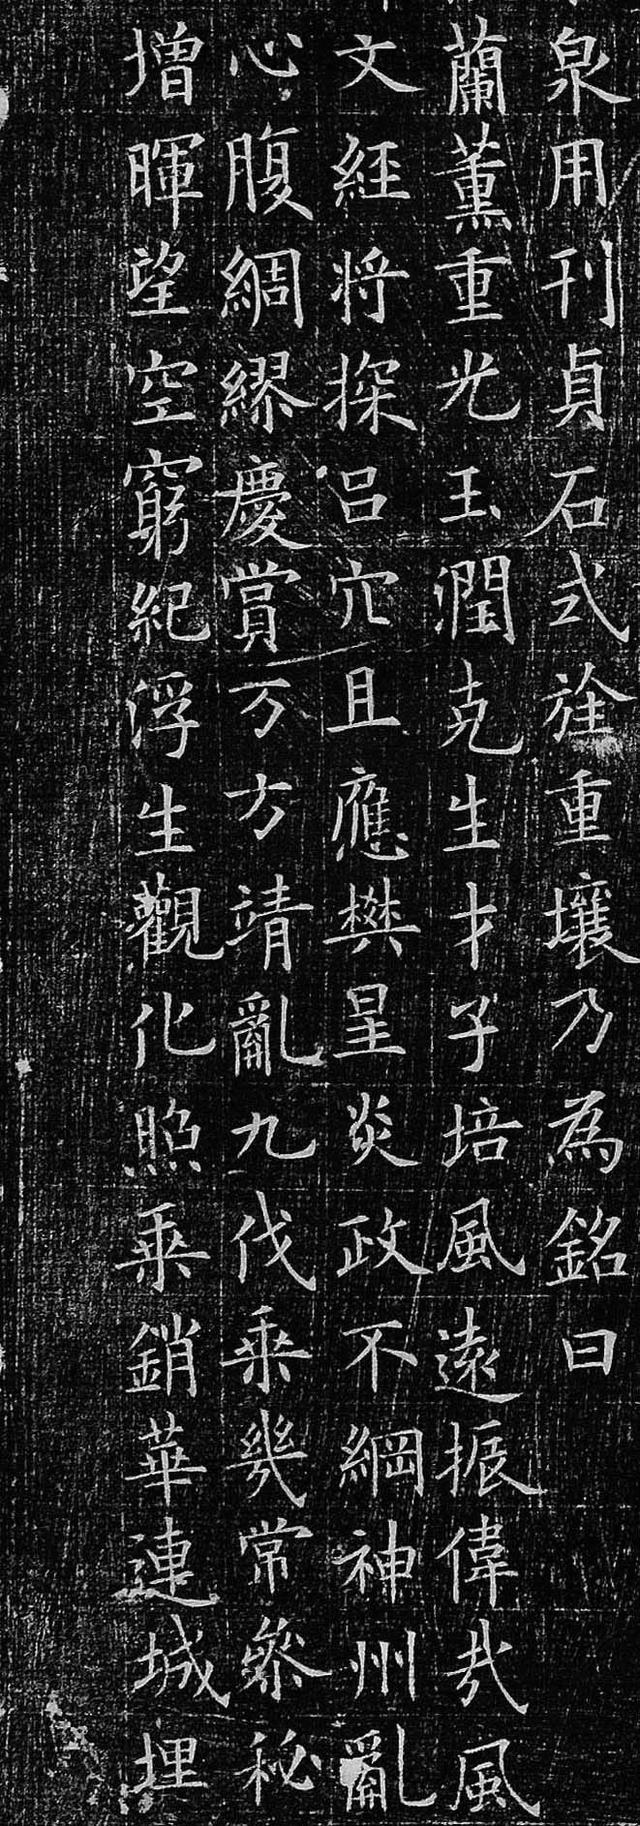 泉用刊貞石式旌重壤乃為銘曰
蘭薰重光玉潤克生才子培風遠振偉哉風
文經將探呂穴且應樊星炎政不綱神州亂
心腹綢繆慶賞万方靖亂九伐乘幾常參秘
增暉望空窮紀浮生觀化照乘銷華連城埋